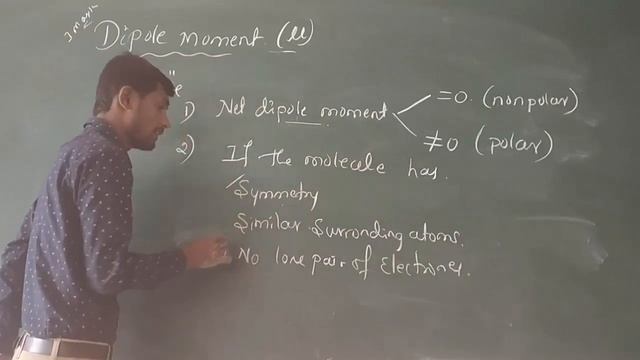 3 mark
Dipole moment (μ)
1) Net dipole moment =0. (nonpolar)
≠0 (polar)
2) If the molecule has.
Symmetry
Similar Surronding atoms.
No lone pair of Electrones.